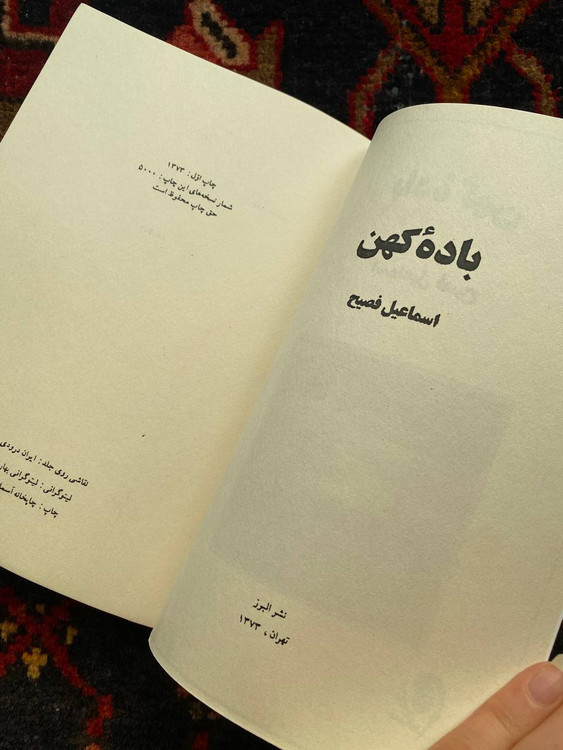 باده کهن
اسماعیل فصیح
نشر البرز
تهران، ۱۳۷۳
چاپ اوّل: ۱۳۷۳
شمار نسخه‌های این چاپ: ۵۰۰۰
حق چاپ محفوظ است
نقاشی روی جلد: ایران درودی
لیتوگرافی: لیتوگرافی
چاپ: چاپخانه